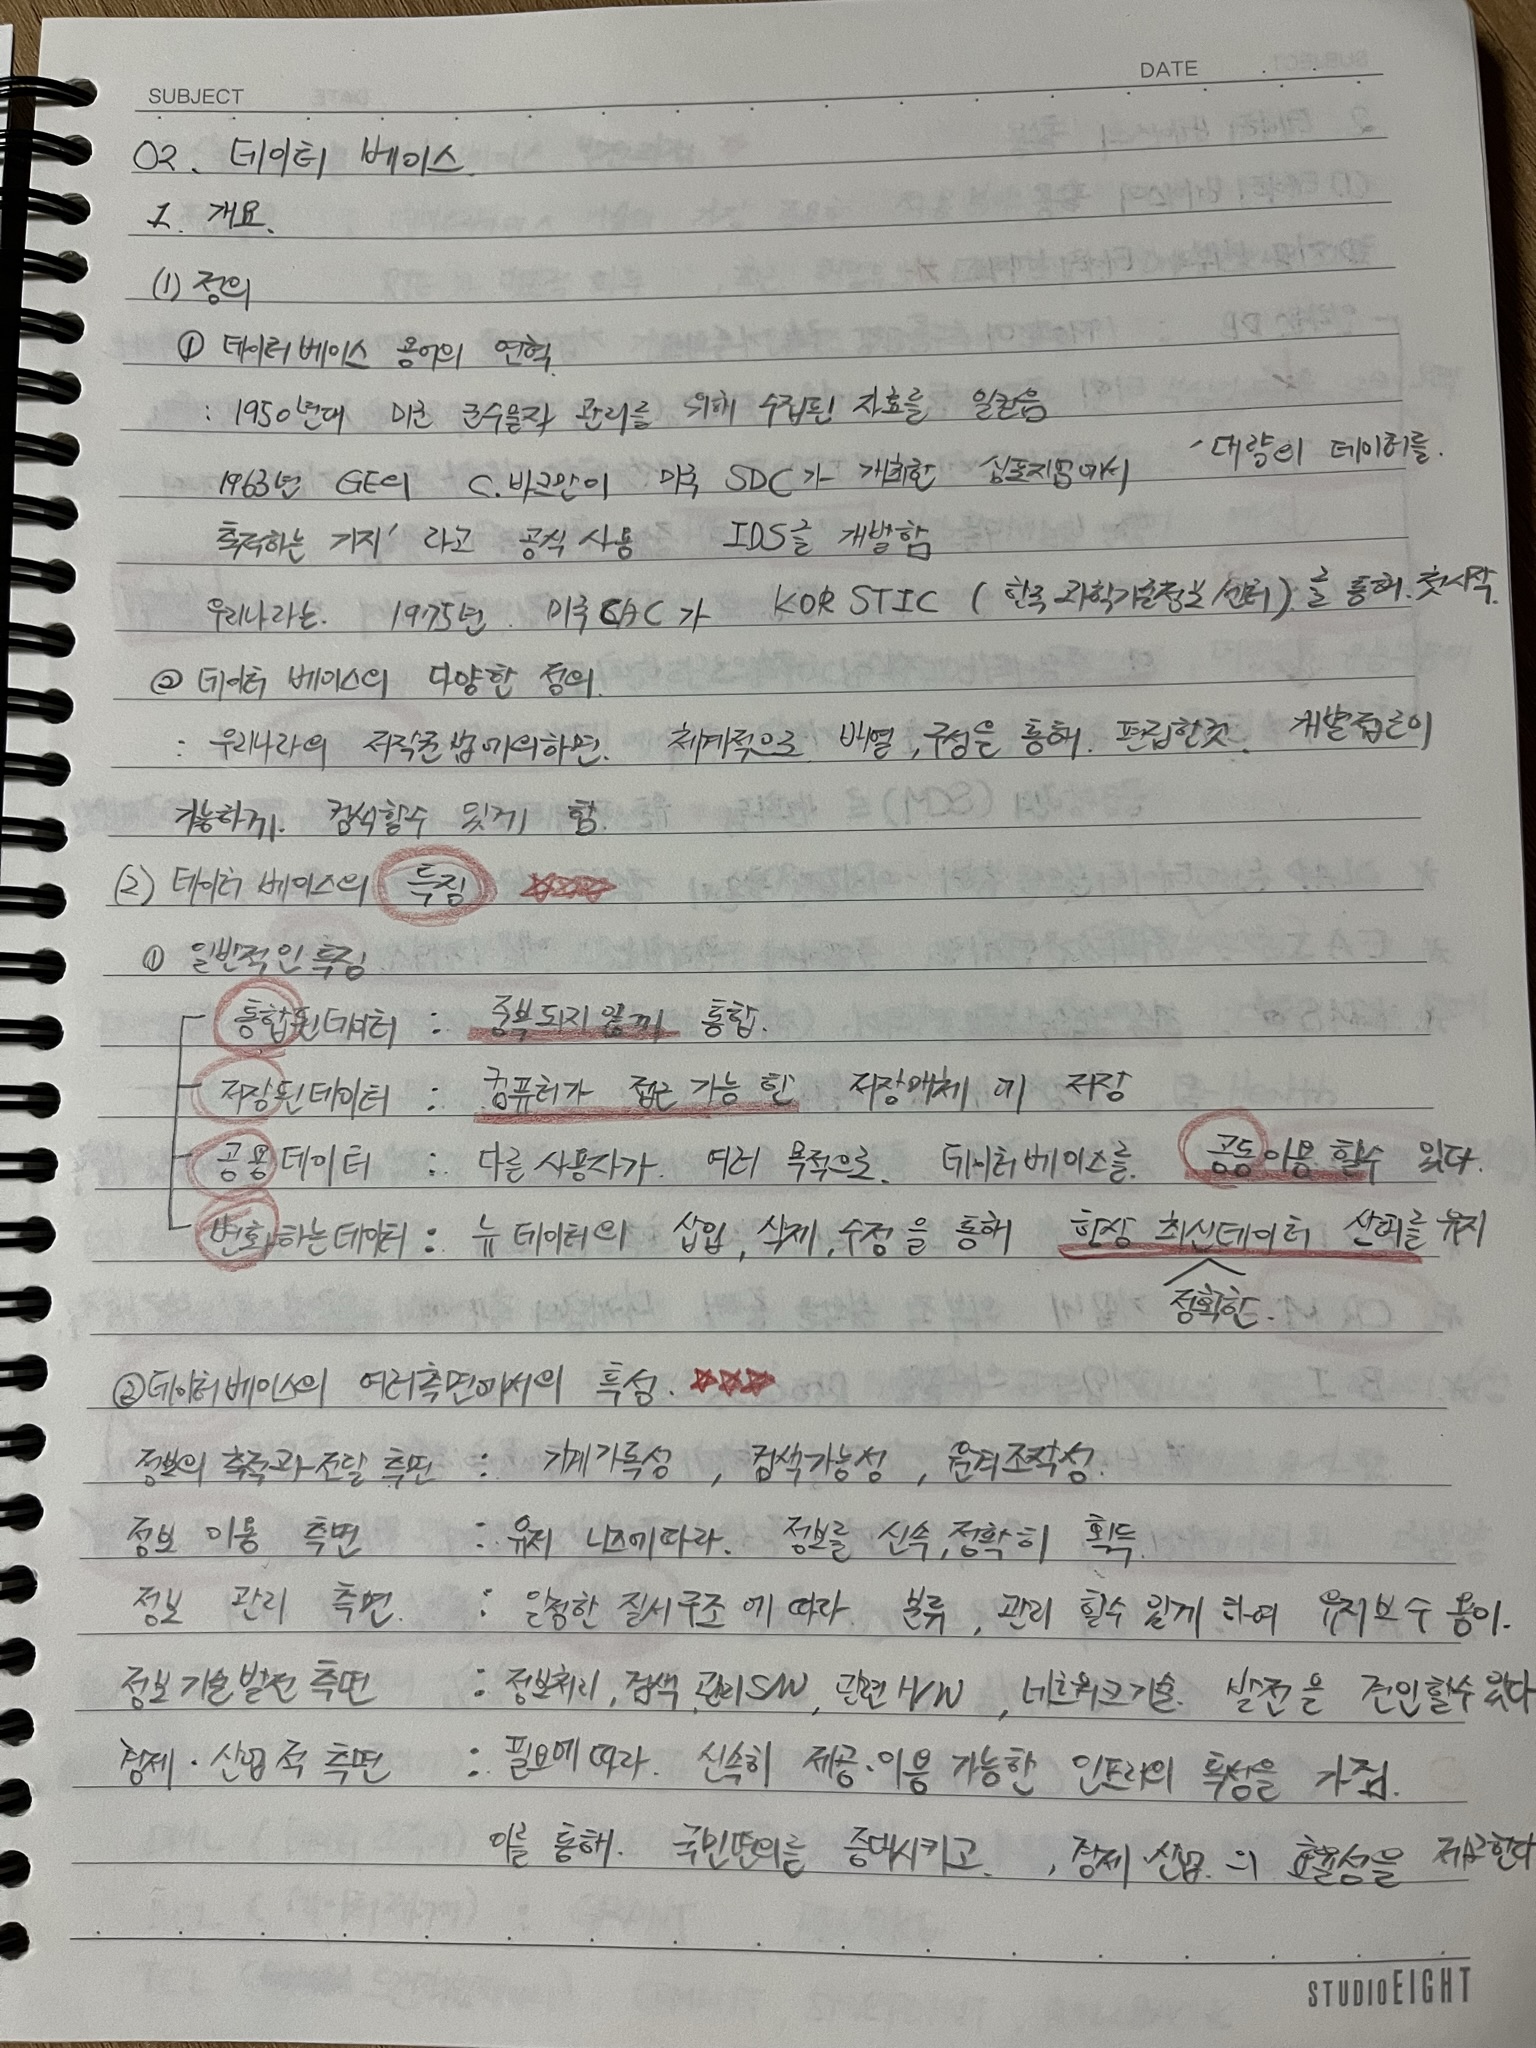 SUBJECT
DATE
02. 데이터 베이스.
1. 개요.
(1) 정의
① 데이터베이스 용어의 연혁.
: 1950년대 미군 군수물자 관리를 위해 수집된 자료를 일컫음
1963년 GE의 C.바크만이 미국 SDC가 개최한 심포지엄에서 '대량의 데이터를.
축적하는 기지' 라고 공식 사용 IDS를 개발함
우리나라는. 1975년. 미국 CAC가 KORSTIC (한국과학기술정보센터)를 통해. 첫시작.
② 데이터 베이스의 다양한 정의.
: 우리나라의 저작권법에의하면. 체계적으로 배열, 구성을 통해. 편집한것. 개별접근이
가능하게. 검색할수 있게 함.
(2) 데이터 베이스의 특징 ☆☆☆
① 일반적인 특징.
통합된데이터 : 중복되지 않게 통합.
저장된데이터 : 컴퓨터가 접근 가능 한 저장매체 에 저장
공용데이터 : 다른 사용자가. 여러 목적으로. 데이터베이스를. 공동이용 할수 있다.
변화하는데이터 : 뉴 데이터의 삽입, 삭제, 수정 을 통해 항상 최신데이터 상태를 유지
정확한.
② 데이터베이스의 여러측면에서의 특성. ☆☆☆
정보의 축적과 전달 측면 : 기계가독성, 검색가능성, 원격조작성.
정보 이용 측면 : 유저 니즈에따라. 정보를 신속, 정확히 획득.
정보 관리 측면. : 일정한 질서구조 에 따라 분류, 관리 할수 있게 하여 유지보수 용이.
정보기술발전 측면 : 정보처리, 검색, 관리S/W, 관련 H/W, 네트워크기술. 발전을 견인할수있다
경제·산업적 측면 : 필요에 따라. 신속히 제공·이용 가능한 인프라의 특성을 가짐.
이를 통해. 국민편의를 증대시키고. , 경제·산업. 의 효율성을 제공한다
STUDIOEIGHT